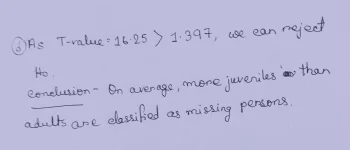 (d) As T-value = 16.25 > 1.397, we can reject
Ho.
conclusion - On average, more juveniles than
adults are classified as missing persons.